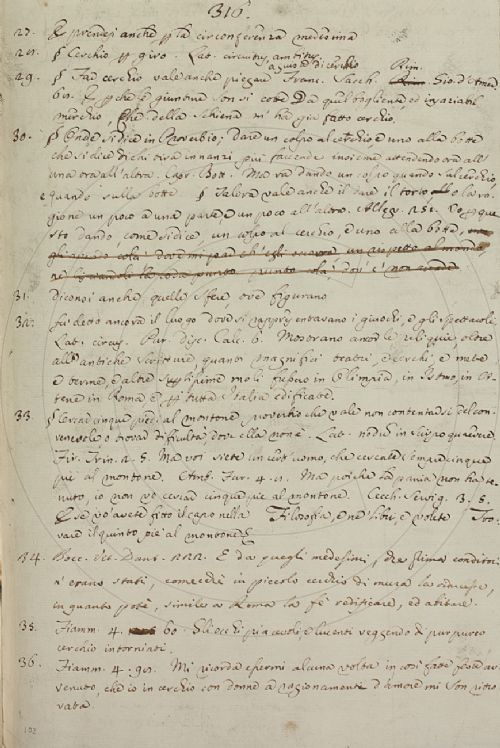 316.
27. E prendesi anche per la circonferenza medesima
28. § Cerchio per giro. Lat. circuitus, ambitus.
a guisa di cerchio
29. § Far cerchio vale anche piegare Franc. Sacch. Rim. Gio. d'Amer.
60. E perche le giunone son si cotte Da quel bagliente ed insaziabil
merchio, Che della schiena n' ha già fatto cerchio.
30. § Onde si dice in Proverbio; dare un colpo al cerchio, e uno alla botte
che si dice di chi tira innanzi più faccende insieme attendendo ora all'
una ora all'altra. Capr. Bott. Ma va dando un colpo quando sul cerchio,
e quando sulla botte § Talora vale anche il dare il torto o la ra-
gione un poco a una parte, e un poco all'altra. Alleg. 251. Vo que-
sto dando, come si dice un colpo al cerchio, e uno alla botte,
31. Diconsi anche quelle sfere ove figurano
32. fu detto ancora il luogo dove si rappresentavano i giuochi, e gli spettacoli
Lat. circus. Pur. disc. Calc. 6. Mostrano ancor le reliquie, oltre
all' antiche scritture, quanti magnifici teatri, e cerchi, e mete
e terme, e altre moli furono in Olimpia, in Istmo, in At-
tene in Roma e per tutta Italia edificate.
33. § Cercar cinque piedi al montone, proverbio che vale non contentarsi del con-
venevole, o trovar difficultà, dove ella non è. Lat. nodum in scirpo quaerere
Fir. Trin. 2. 5. Ma voi siete un cert' uomo, che cercate sempre cinque
piè al montone. Amb. Fur. 4. 11. Ma poiche la pania non ha te-
nuto, io non vo cercar cinque piè al montone. Cecch. Servig. 3. 5.
E se v'avete fitto il capo nella Filosofia, e ne' libri, e volete Tro-
vare il quinto piè al montone
34. Bocc. Vit. Dant. 222. E da quegli medesimi, che prima conditori
n' erano stati, comecchè in piccolo cerchio di mura la riducesse,
in quanto potè, simile a Roma la fè redificare, ed abitare.
35. Fiamm. 4. 60. Gli occhi piacevoli e lucenti veggendo di purpureo
cerchio intorniati.
36. Fiamm. 4. 90. Mi ricorda essermi alcuna volta in così fatte feste av-
venuto, che io in cerchio con donne a ragionamenti d'amore mi son ritro-
vata.
102